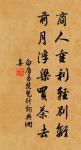 商人重利轻别离
前月浮梁买茶去
白居易琵琶行诗典网
集